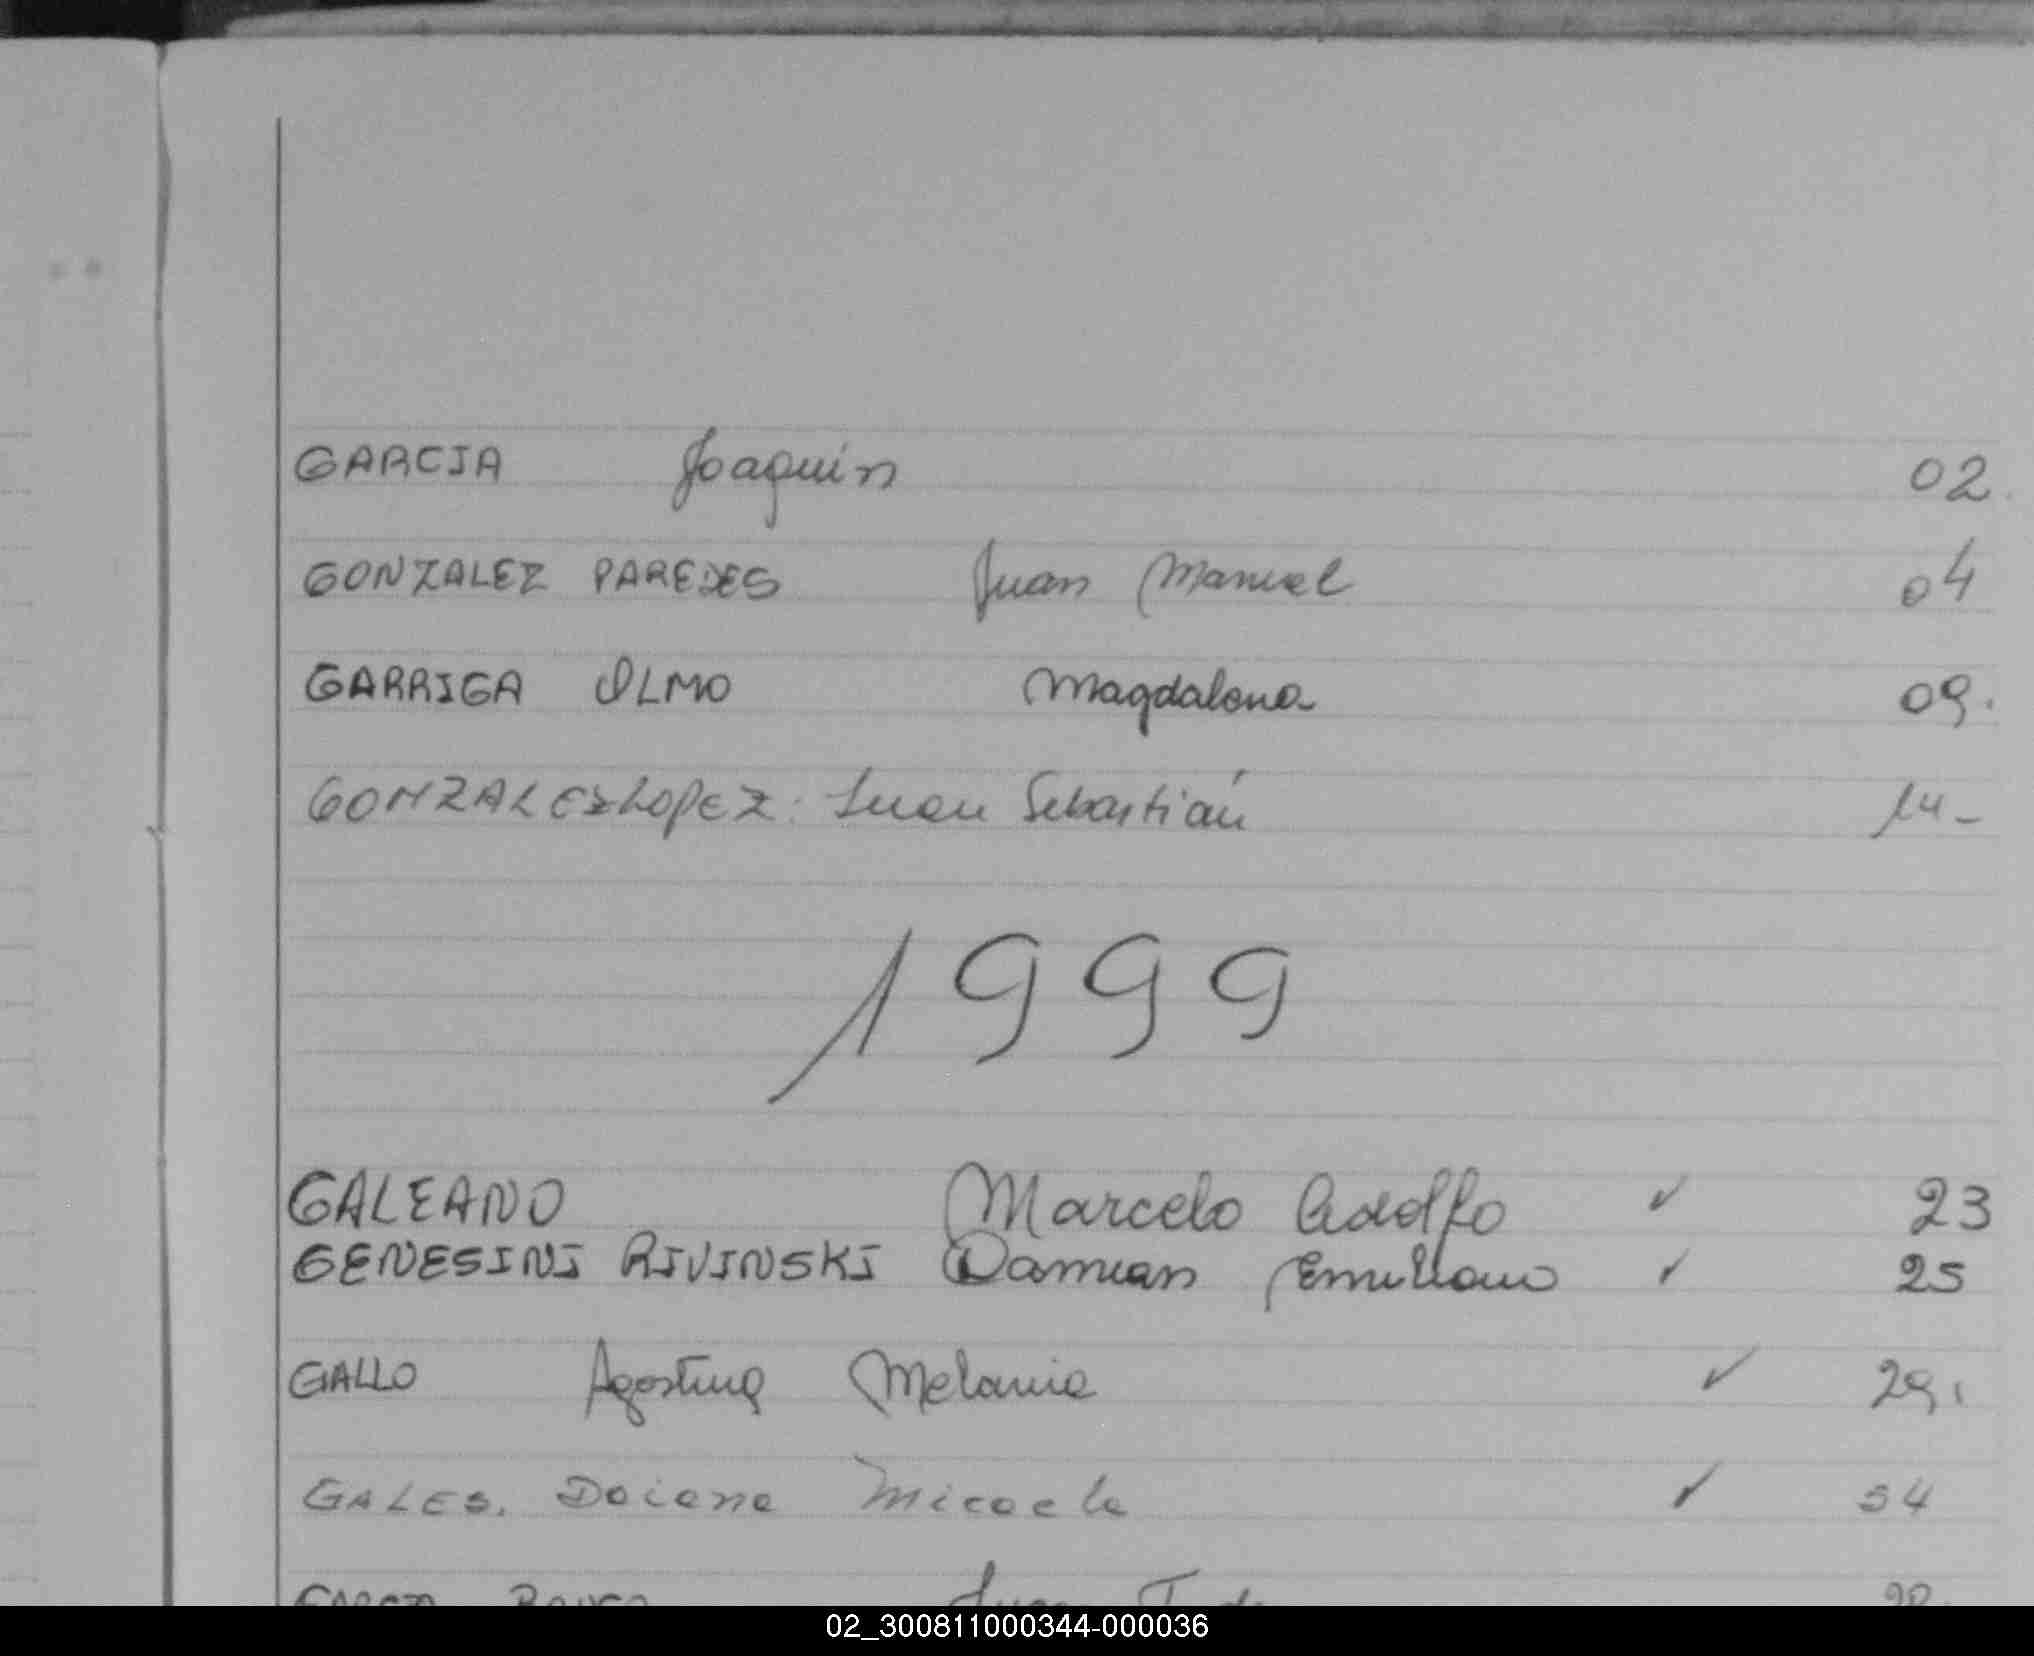 GARCIA Joaquin 02.
GONZALEZ PAREDES Juan Manuel 04
GARRIGA OLMO Magdalena 09.
GONZALEZ LOPEZ: Juan Sebastián 14-
1999
GALEANO Marcelo Adolfo ✓ 23
GENESINI RIVINSKI Damian Emiliano ✓ 25
GALLO Agostina Melanie ✓ 29.
GALES. Daiana Micaela ✓ 54
GARCIA Juan
02_300811000344-000036